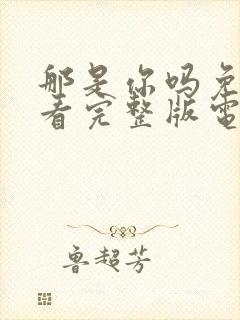 那是你吗免
看完整版电
鲁超芳